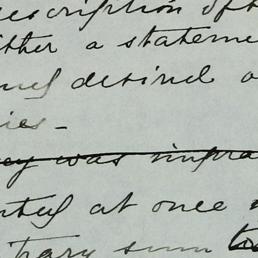 description of th
ither a stateme
desired o
ies –
ey was impra
nted at once
trary sum